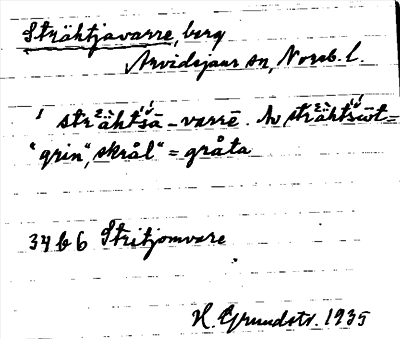 Strähtjavarre, berg
Arvidsjaur sn, Norrb. l.
strähtsa-varrē. Av strähtsōt =
"grin", skrål" = gråta
34 b 6 Stritjomvare
H. Grundstr. 1935